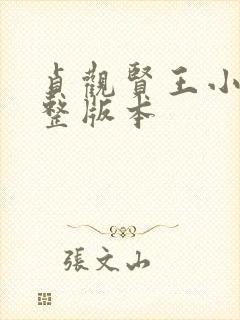 貞觀賢王小
整版本
張文山